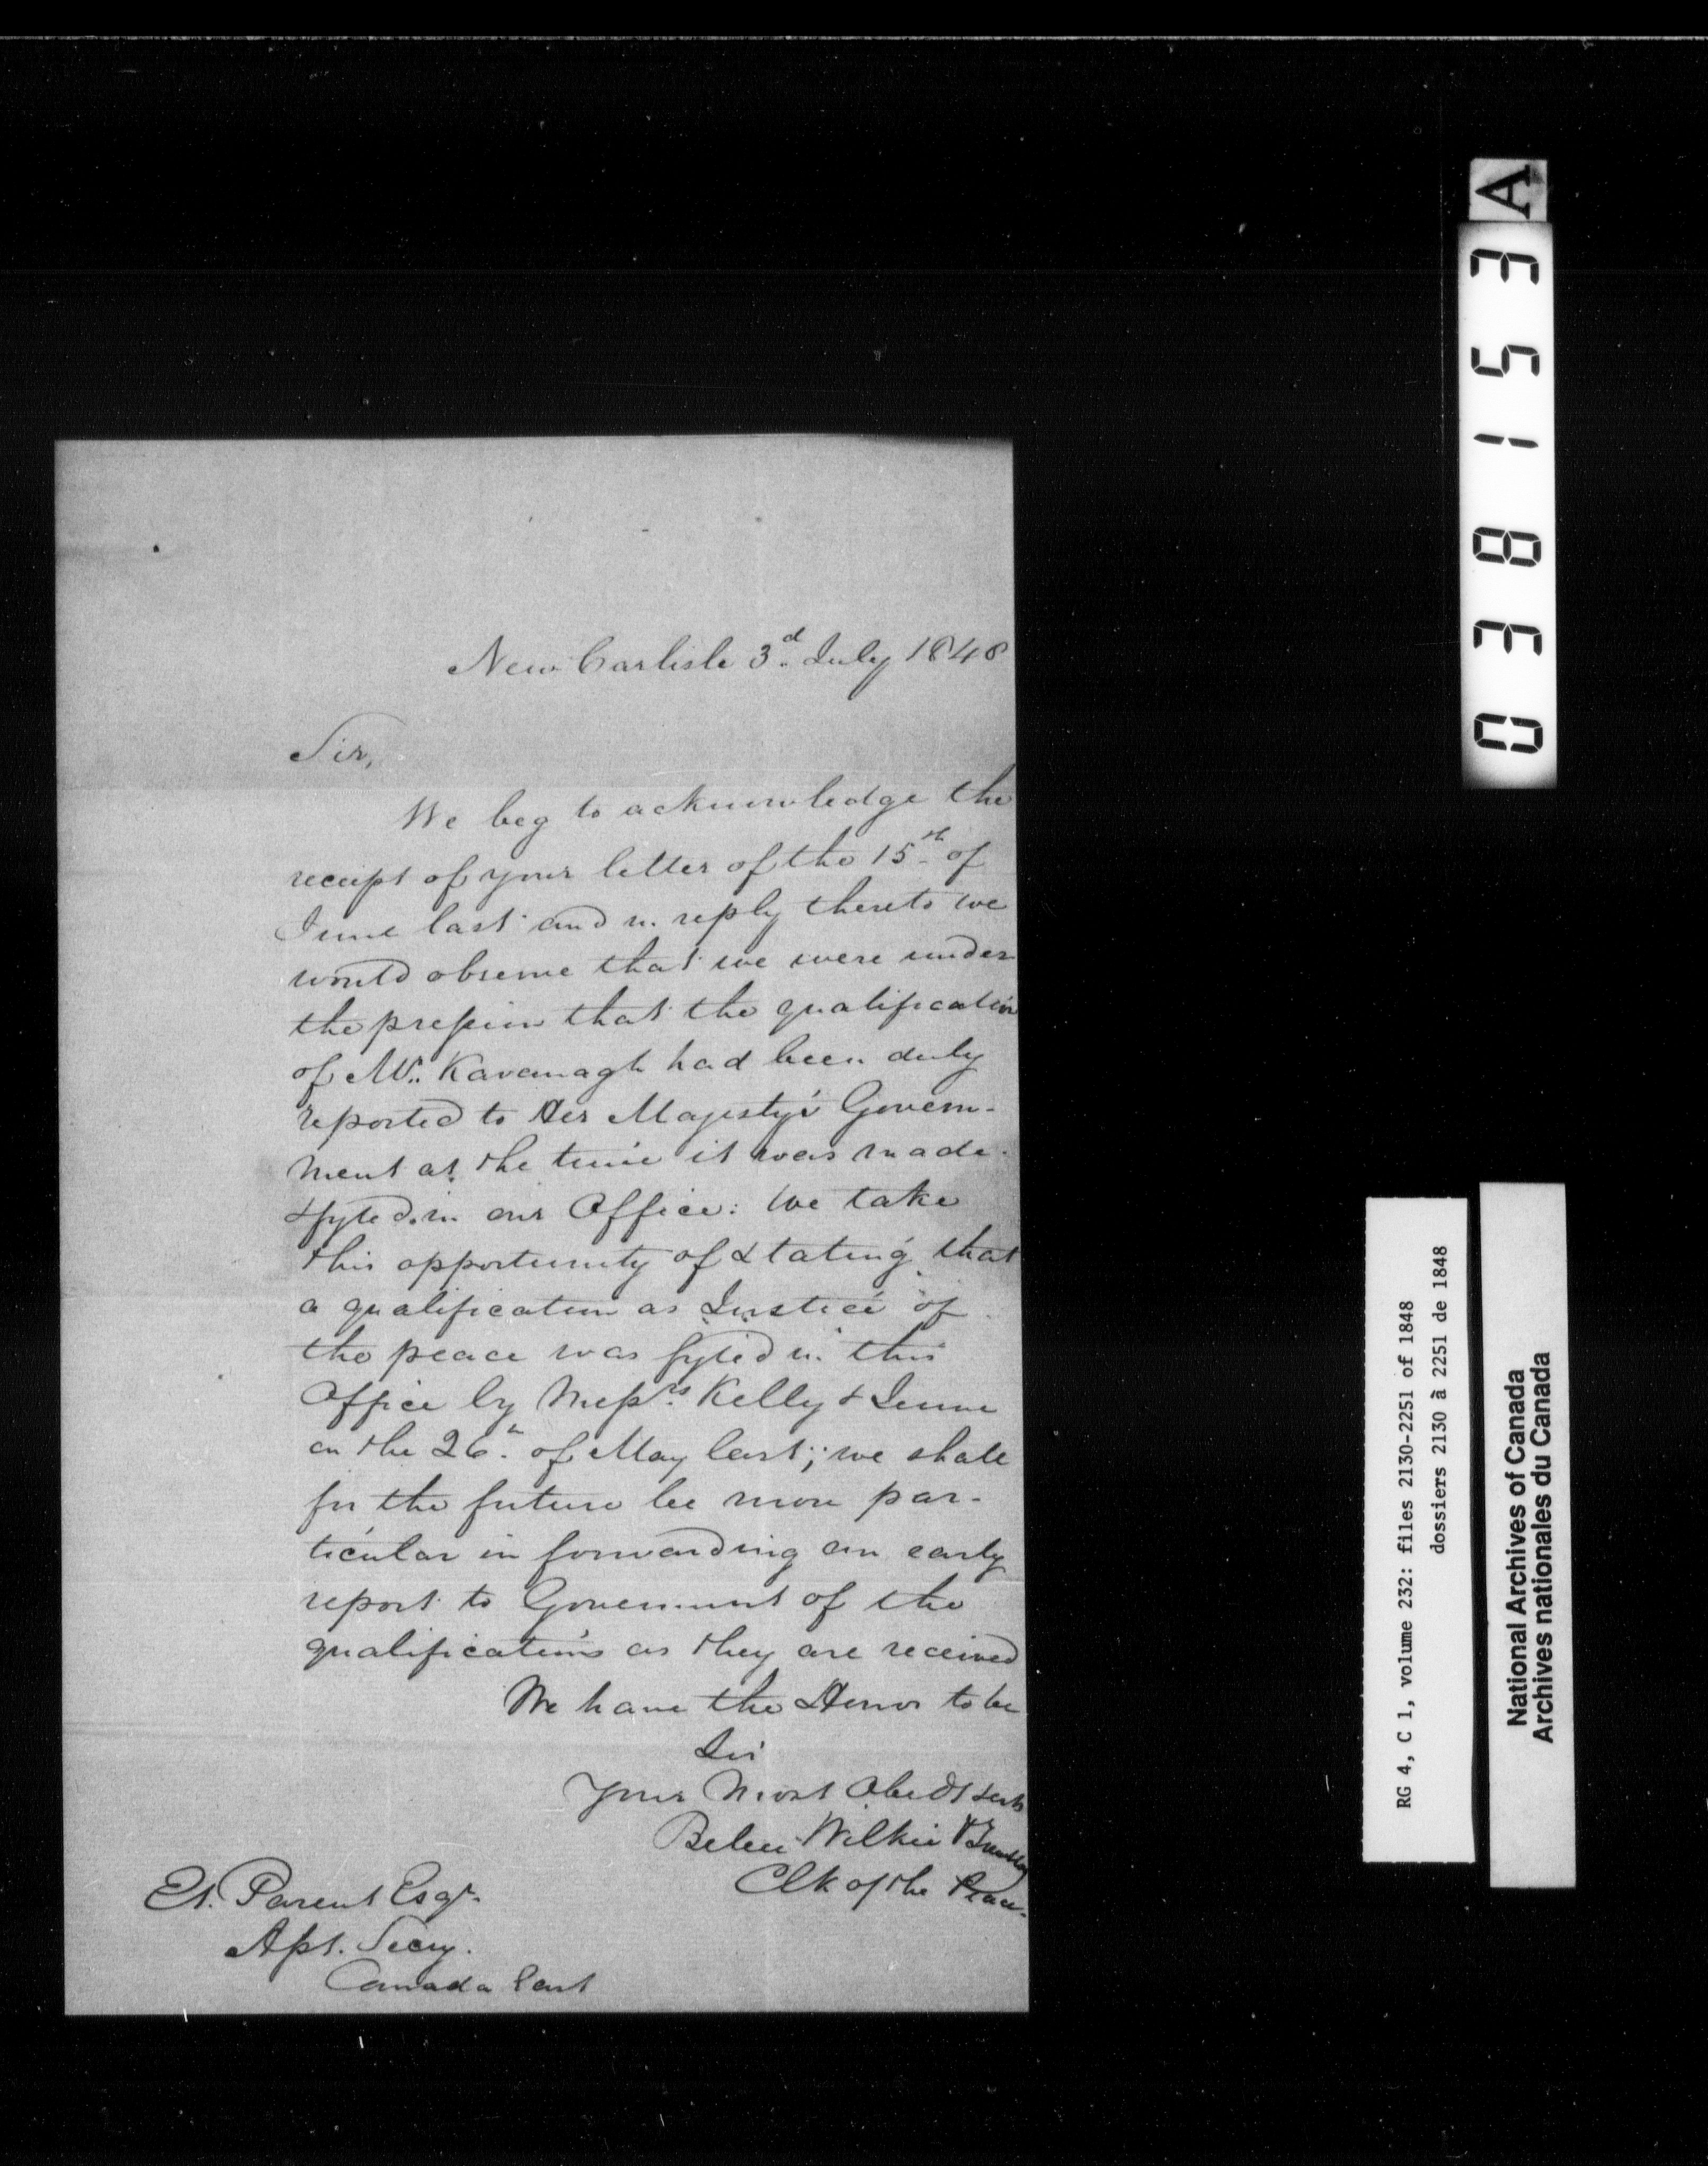 New Carlisle 3d. July 1848
Sir,
We beg to acknowledge the
receipt of your letter of the 15th of
June last and in reply thereto we
would observe that we were under
the pression that the qualification
of Mr. Kavanagh had been duly
reported to Her Majesty's Govern-
ment at the time it was made
& fyled in our Office: We take
this opportunity of stating that
a qualification as Justice of
the peace was fyled in this
Office by Messrs. Kelly &
on the 26th of May last; we shall
for the future be more par-
ticular in forwarding an early
report to Government of the
qualifications as they are received
We have the Honor to be
Sir
Your Most Obedt Servts
Wilkie &
Clk of the Peace.
Et. Parent Esqr.
Asst. Secy.
Canada East
A
038153
RG 4, C 1, volume 232: files 2130-2251 of 1848
dossiers 2130 à 2251 de 1848
National Archives of Canada
Archives nationales du Canada